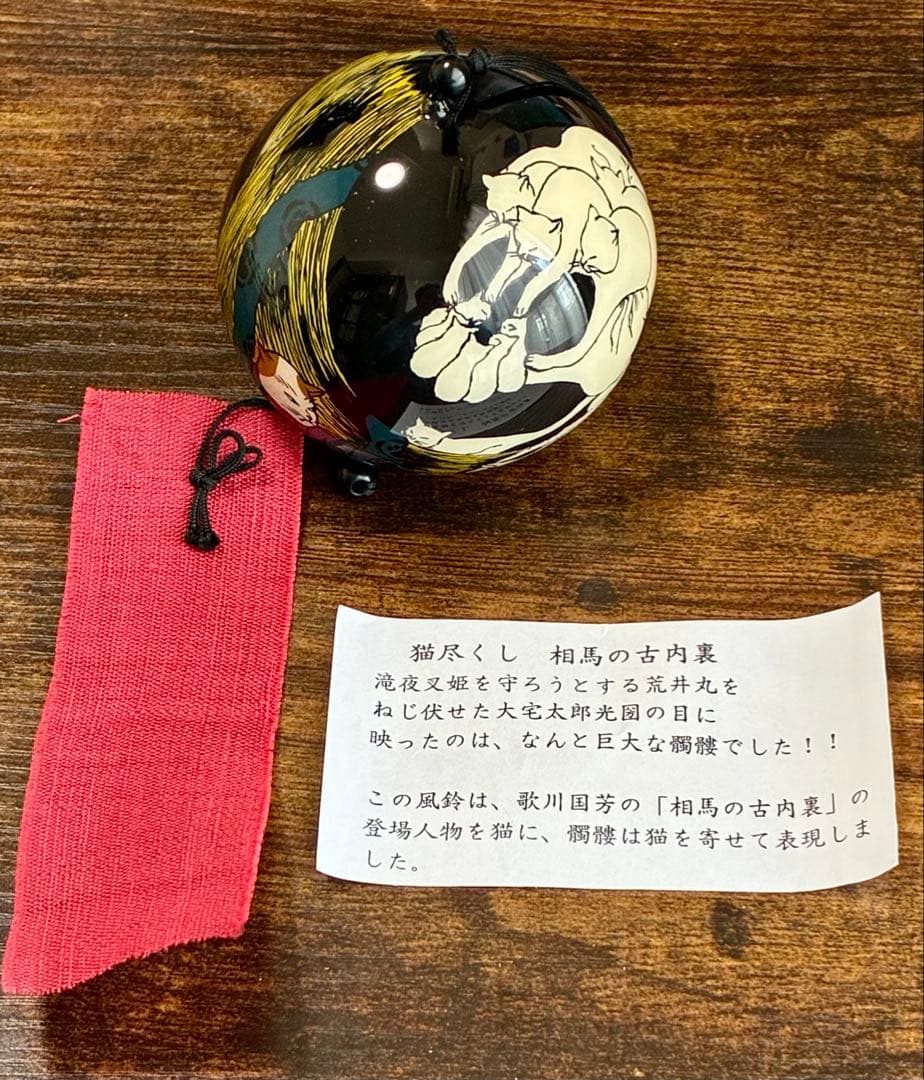 猫尽くし　相馬の古内裏
滝夜叉姫を守ろうとする荒井丸を
ねじ伏せた大宅太郎光圀の目に
映ったのは、なんと巨大な髑髏でした！！
この風鈴は、歌川国芳の「相馬の古内裏」の
登場人物を猫に、髑髏は猫を寄せて表現しま
した。